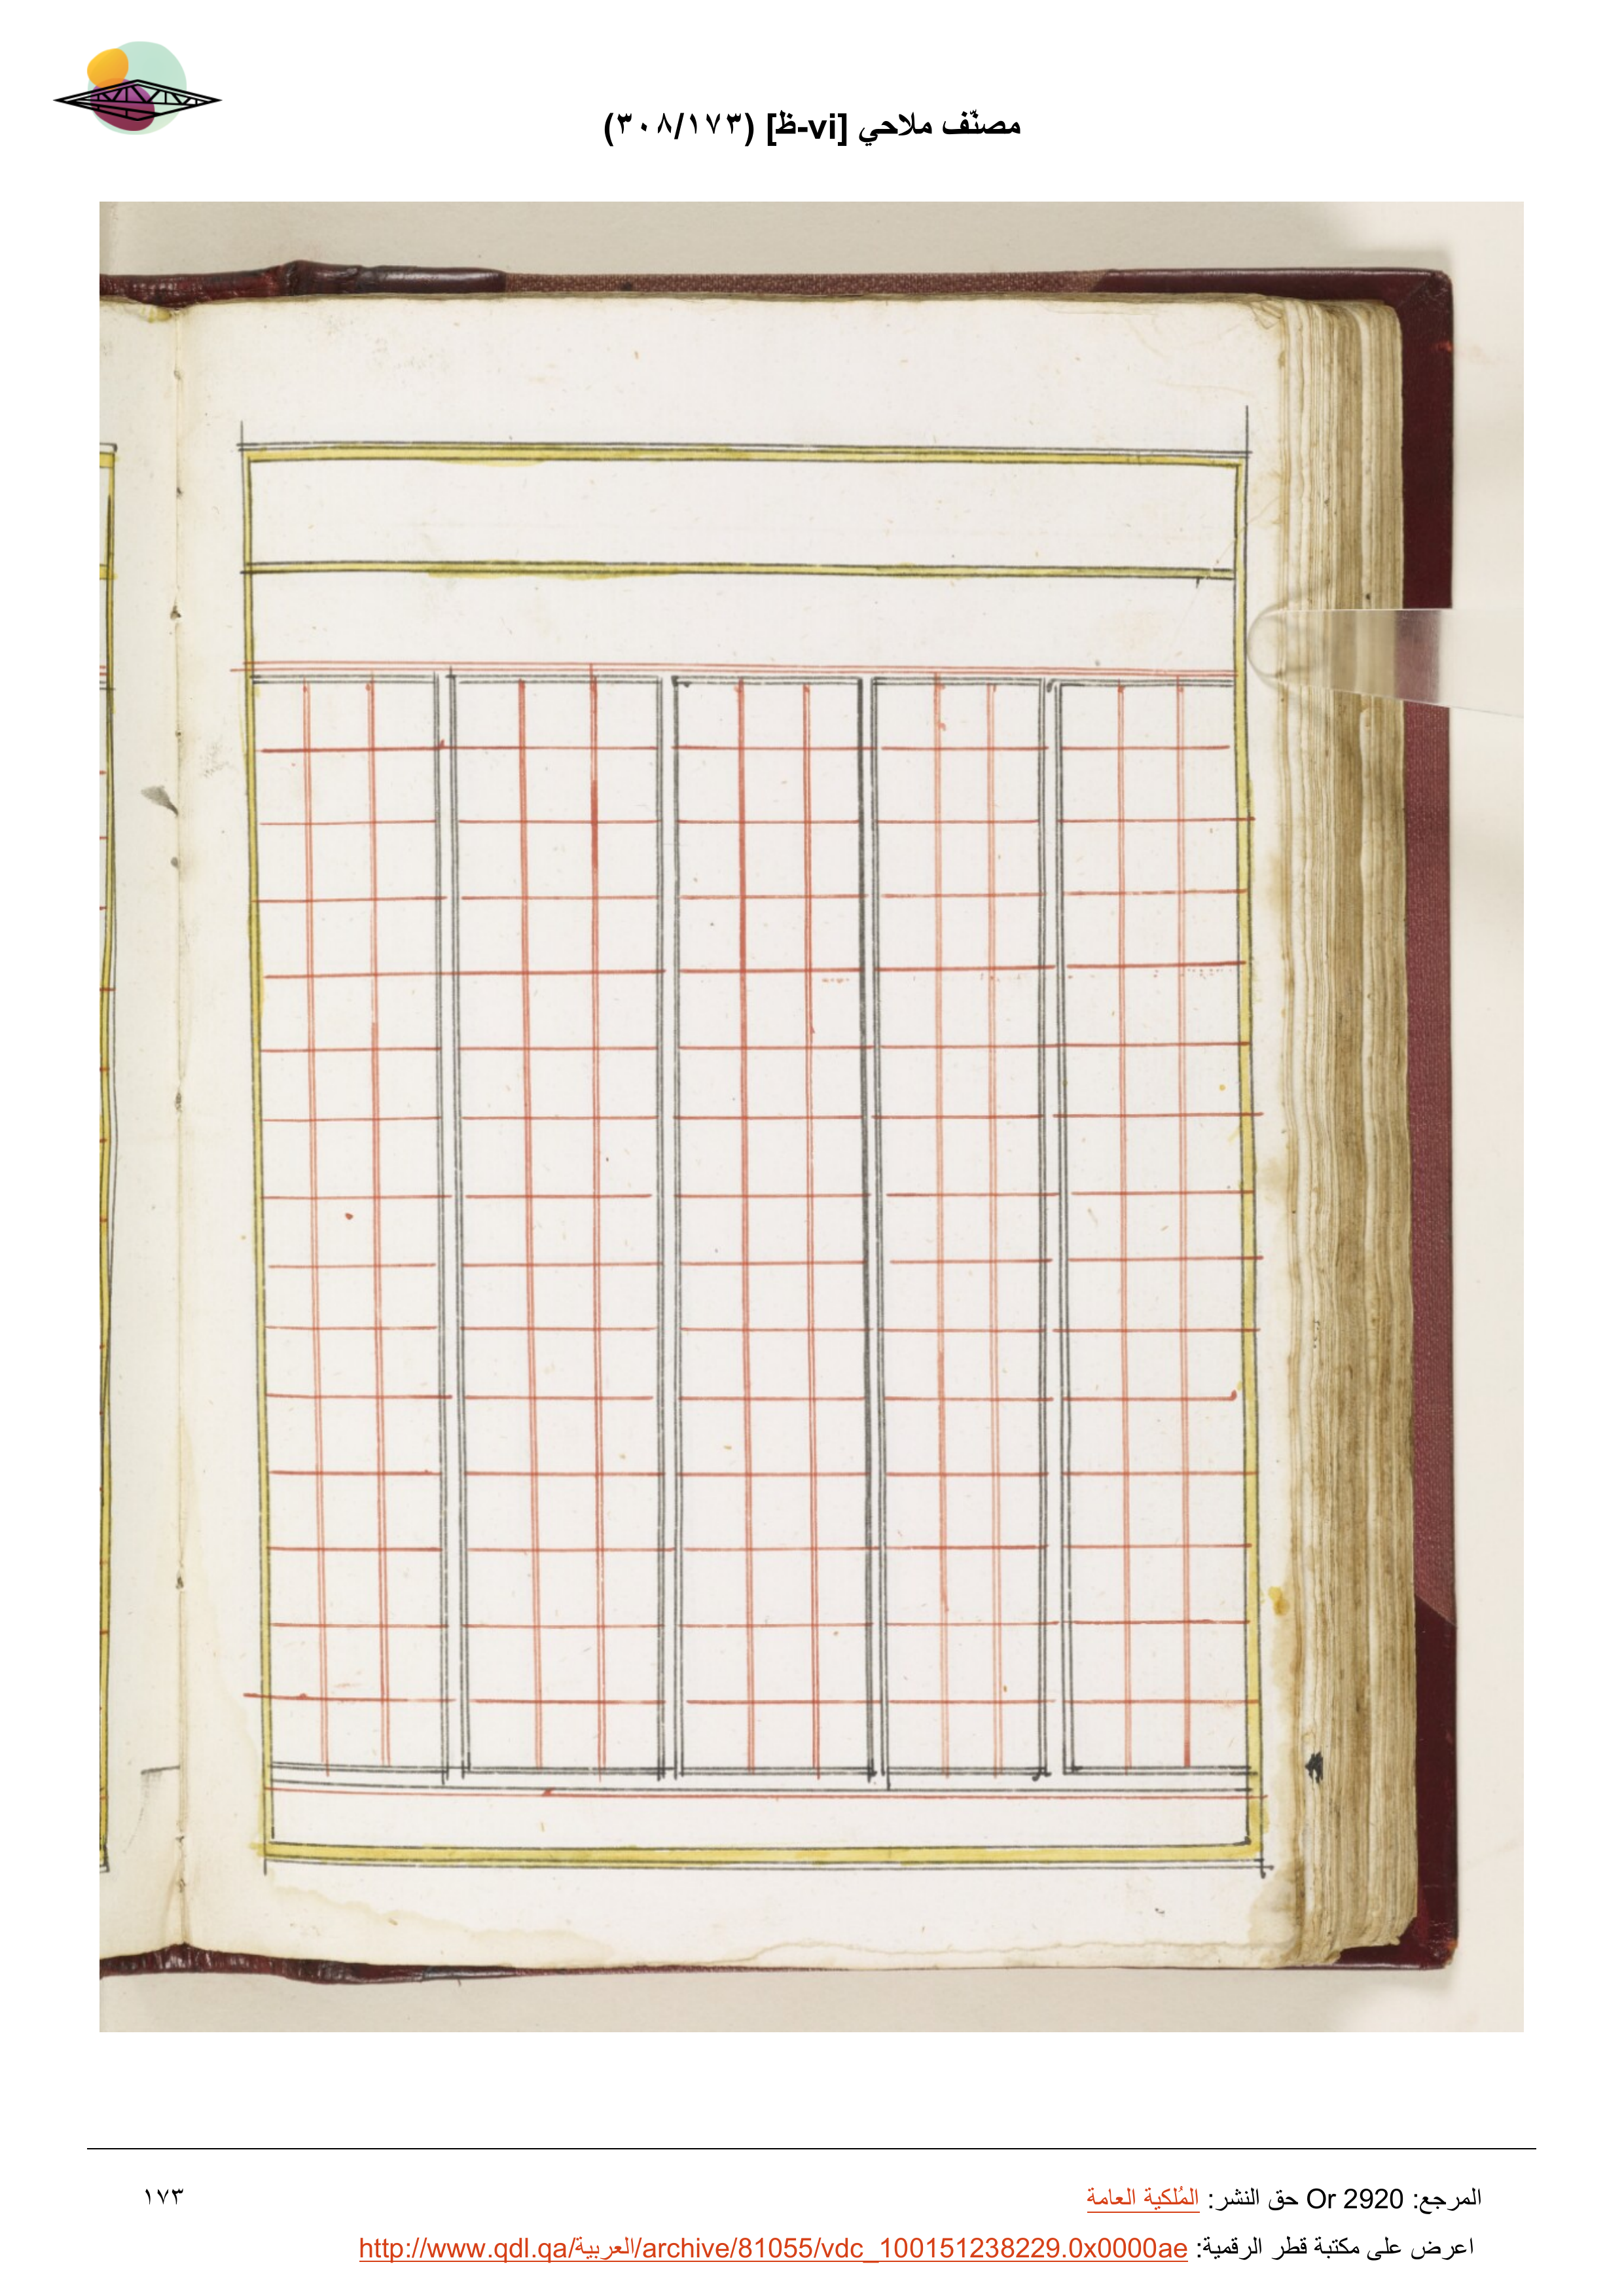 مصنّف ملاحي [vi-ظ] (٣٠٨/١٧٣)
المرجع: Or 2920 حق النشر: المُلكية العامة
١٧٣
اعرض على مكتبة قطر الرقمية: http://www.qdl.qa/العربية/archive/81055/vdc_100151238229.0x0000ae